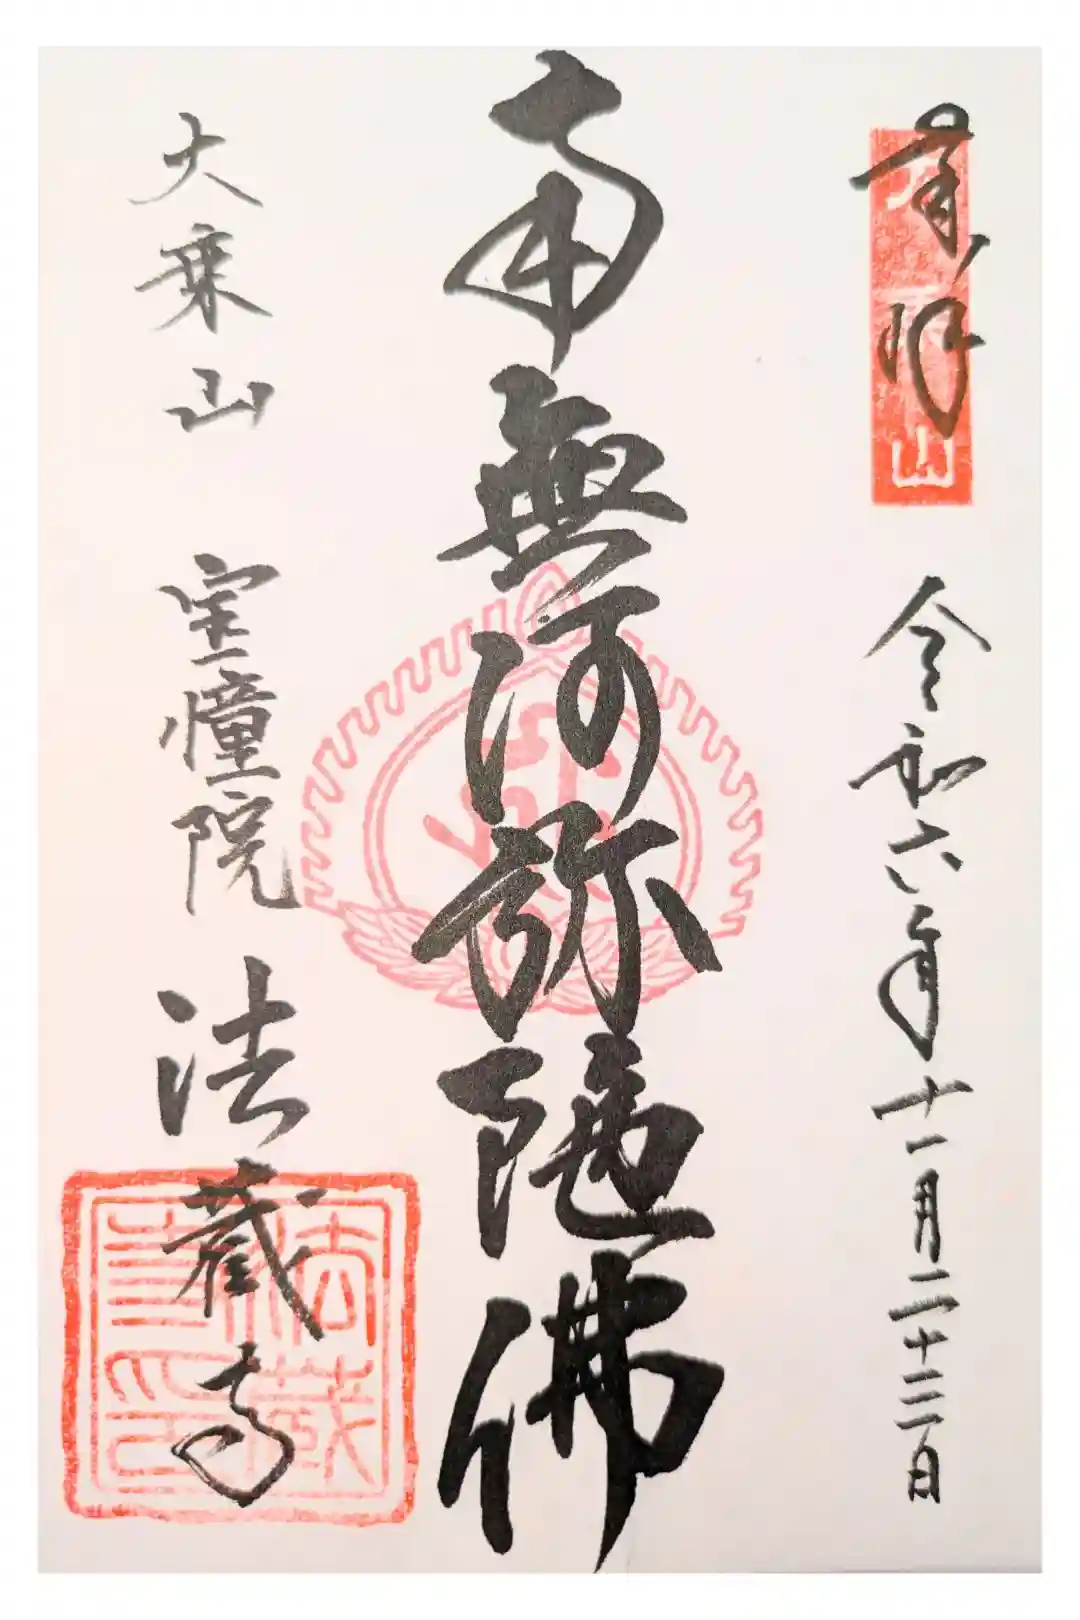 奉拝
令和六年十一月二十三日
南無阿弥陀佛
大乗山 宝憧院 法蔵寺
法蔵寺印